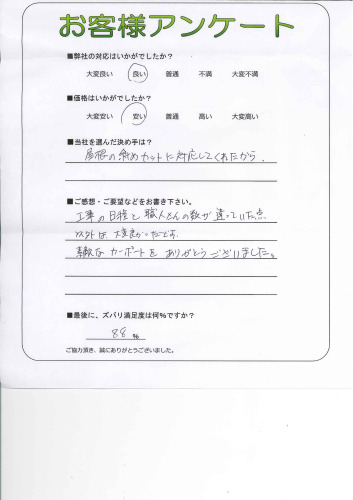 お客様アンケート
■弊社の対応はいかがでしたか?
大変良い 良い 普通 不満 大変不満
■価格はいかがでしたか?
大変安い 安い 普通 高い 大変高い
■当社を選んだ決め手は?
屋根の斜めカットに対応してくれたから。
■ご感想・ご要望などをお書き下さい。
工事の日程と職人さんの数が違っていた点
以外は、大変良かったです。
素敵なカーポートをありがとうございました。
■最後に、ズバリ満足度は何%ですか?
88 %
ご協力頂き、誠にありがとうございました。